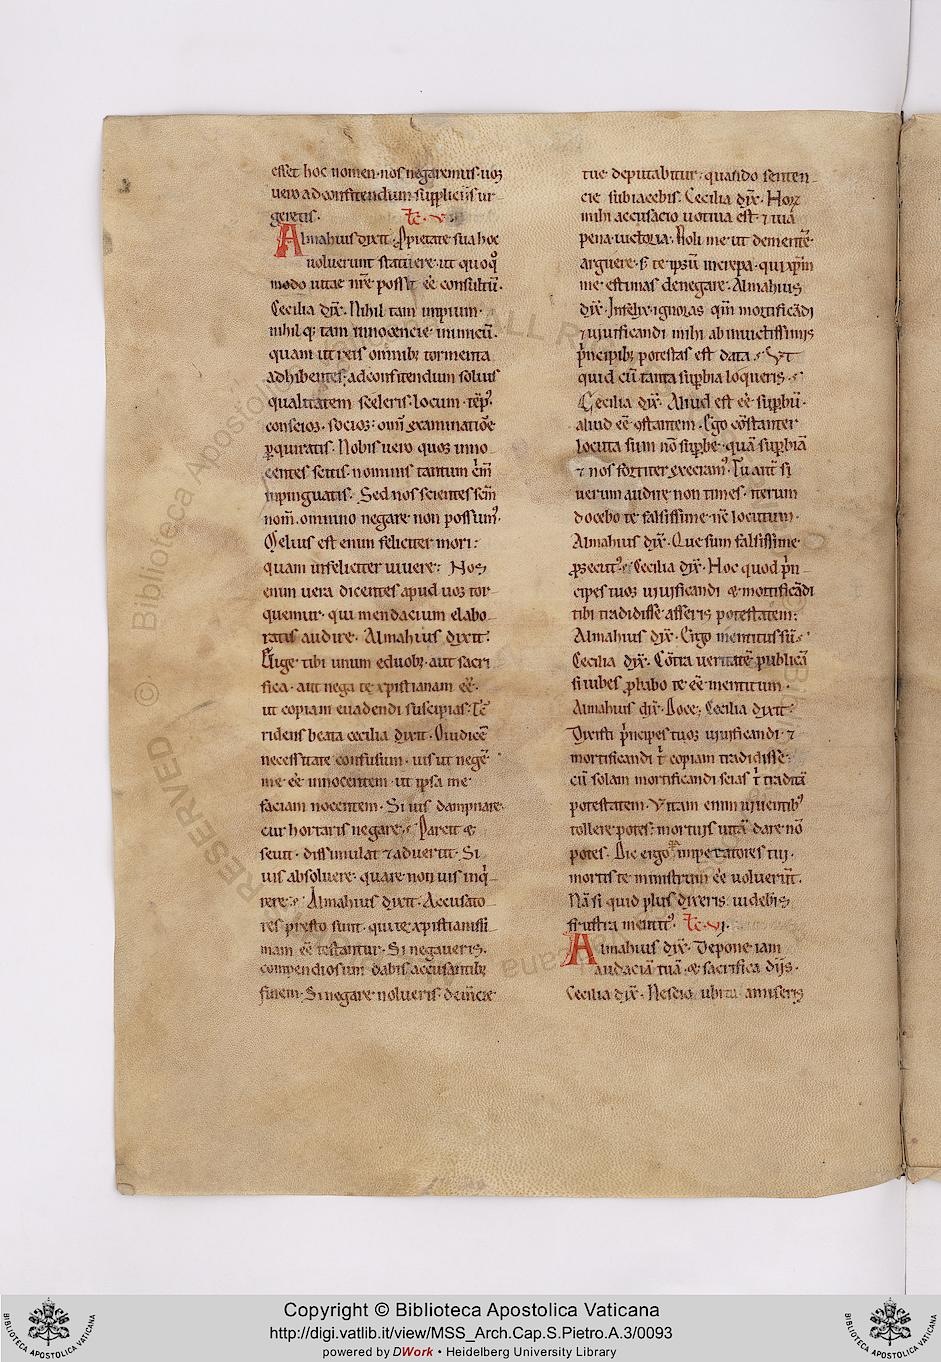 esset hoc nomen. nos negaremus. uos
uero ad confitendum supplicijs ur
geretis. Lc̄. v.
Almahius dixit. Pietate sua hoc
uoluerunt statuere. ut quoq̊
modo uitae nr̄e possit eē consultū.
Cecilia dix̄. Nihil tam impium.
nihil q; tam innocencie inimicū.
quam ut reis omnib; tormenta
adhibentes. ad confitendum solus
qualitatem sceleris. locum. tēp᷒.
conscios. socios. om̄i examinatiōe
perquiratis. Nobis uero quos inno
centes scitis. nominis tantum c̄m̄
inpinguatis. Sed nos scientes sc̄m̄
nom̄. omnino negare non possum᷒.
Melius est enim feliciter mori:
quam infeliciter uiuere: Nos
enim uera dicentes apud uos tor-
quemur. qui mendacium elabo-
ratis audire. Almahius dixit:
Elige tibi unum eduob; aut sacri
fica. aut nega te xp̄istianam eē.
ut copiam euadendi suscipias. Tc̄
ridens beata cecilia dixit. O iudicē
necessitate confusum. uis ut negē
me eē innocentem. ut ipsa me
faciam nocentem. Si uis dampnare.
cur hortaris negare. Parcit &
seuit. dissimulat & aduertit. Si
uis absoluere. quare non uis inq̄
rere. Almahius dixit. Accusato-
res presto sunt. qui te xp̄istianissi
mam eē testantur. Si negaueris.
compendiosum dabis accusantib;
finem. Si negare nolueris. demencie
tue deputabitur: quando senten-
cie subiacebis. Cecilia dix̄. Horum
mihi accusacio uotiua est. & tua
pena uictoria. Noli me ut dementē
arguere. s; te ipsū increpa. qui xp̄m
me estimas denegare. Almahius
dix̄. Infelix ignoras qm̄ mortificādi
& uiuificandi mihi ab inuictissimis
principib; potestas est data. Ut
quid cū tanta supbia loqueris.
Cecilia dix̄. Aliud est eē supbū.
aliud eē constantem. Ego cōstanter
locuta sum nō supbe. quā supbiā
& nos fortiter execram᷒. Tu aut̄ si
uerum audire non times. iterum
docebo te falsissime nc̄ locutum.
Almahius dix̄. Que sum falsissime
prosecut᷒. Cecilia dix̄. Hoc quod prin-
cipes tuos uiuificandi & mortificādi
tibi tradidisse asseris potestatem:
Almahius dix̄. Ergo mentitus sū.
Cecilia dix̄. Cōtra ueritatē publicā
si iubes probabo te eē mentitum.
Almahius dix̄. Doce: Cecilia dixit:
Dixisti principes tuos uiuificandi. &
mortificandi t̄ copiam tradidissē:
cū solam mortificandi scias t̄ traditā
potestatem. Vitam enim uiuentib᷒
tollere potes: mortuis uitā dare nō
potes. Dic ergo q̄a imperatores tui.
mortis te ministrum eē uoluerūt.
Nā si quid plus dixeris. uideb̄is
frustra mentit᷒. Lc̄. vi.
Almahius dix̄. Depone iam
audaciā tuā. & sacrifica dijs.
Cecilia dix̄. Nescio ubi tu amiseris
Copyright © Biblioteca Apostolica Vaticana
http://digi.vatlib.it/view/MSS_Arch.Cap.S.Pietro.A.3/0093
powered by DWork • Heidelberg University Library